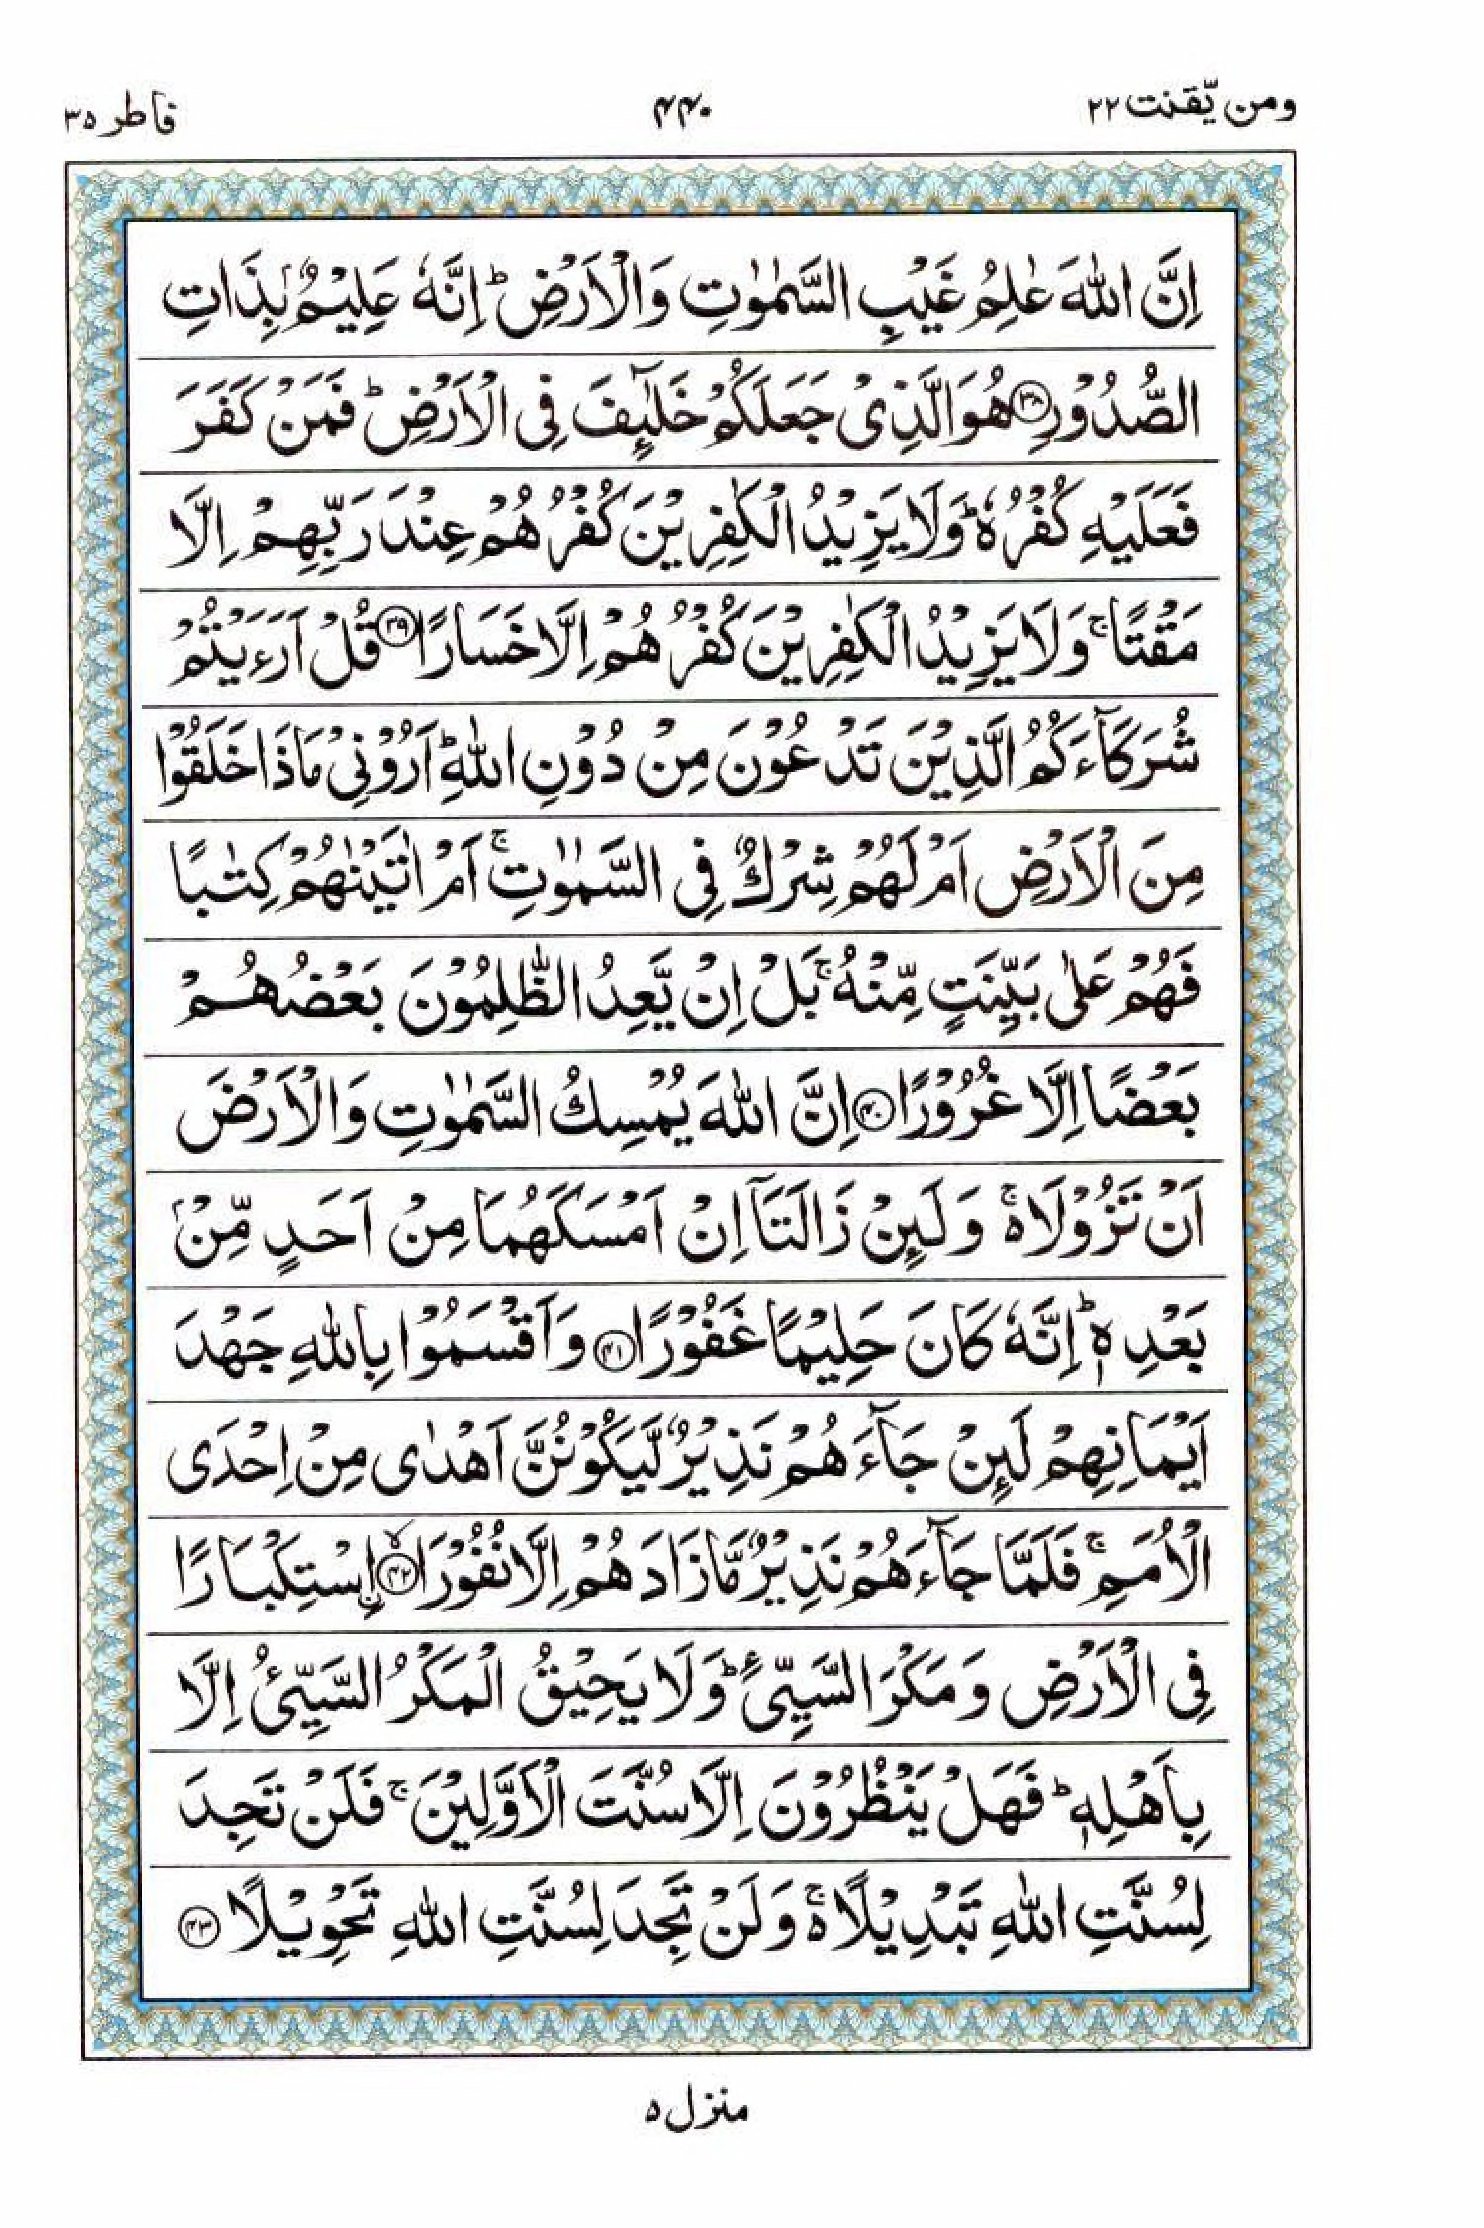 ومن یّقنت ٢٢ ۴۴۰ فاطر ٣۵
اِنَّ اللّٰهَ عٰلِمُ غَیْبِ السَّمٰوٰتِ وَالْاَرْضِ ؕ اِنَّهٗ عَلِیْمٌۢ بِذَاتِ
الصُّدُوْرِ ﴿٣٨﴾ هُوَ الَّذِیْ جَعَلَكُمْ خَلٰٓئِفَ فِی الْاَرْضِ ؕ فَمَنْ كَفَرَ
فَعَلَیْهِ كُفْرُهٗ ؕ وَلَا یَزِیْدُ الْكٰفِرِیْنَ كُفْرُهُمْ عِنْدَ رَبِّهِمْ اِلَّا
مَقْتًا ۚ وَلَا یَزِیْدُ الْكٰفِرِیْنَ كُفْرُهُمْ اِلَّا خَسَارًا ﴿٣٩﴾ قُلْ اَرَءَیْتُمْ
شُرَكَآءَكُمُ الَّذِیْنَ تَدْعُوْنَ مِنْ دُوْنِ اللّٰهِ ؕ اَرُوْنِیْ مَاذَا خَلَقُوْا
مِنَ الْاَرْضِ اَمْ لَهُمْ شِرْكٌ فِی السَّمٰوٰتِ ۚ اَمْ اٰتَیْنٰهُمْ كِتٰبًا
فَهُمْ عَلٰی بَیِّنَتٍ مِّنْهُ ۚ بَلْ اِنْ یَّعِدُ الظّٰلِمُوْنَ بَعْضُهُمْ
بَعْضًا اِلَّا غُرُوْرًا ﴿۴۰﴾ اِنَّ اللّٰهَ یُمْسِكُ السَّمٰوٰتِ وَالْاَرْضَ
اَنْ تَزُوْلَا ۚ۬ وَلَئِنْ زَالَتَاۤ اِنْ اَمْسَكَهُمَا مِنْ اَحَدٍ مِّنْۢ
بَعْدِهٖ ؕ اِنَّهٗ كَانَ حَلِیْمًا غَفُوْرًا ﴿۴١﴾ وَاَقْسَمُوْا بِاللّٰهِ جَهْدَ
اَیْمَانِهِمْ لَئِنْ جَآءَهُمْ نَذِیْرٌ لَّیَكُوْنُنَّ اَهْدٰی مِنْ اِحْدَی
الْاُمَمِ ۚ فَلَمَّا جَآءَهُمْ نَذِیْرٌ مَّا زَادَهُمْ اِلَّا نُفُوْرَا ﴿۴٢﴾ۙ اِ۟سْتِكْبَارًا
فِی الْاَرْضِ وَمَكْرَ السَّیِّئِ ؕ وَلَا یَحِیْقُ الْمَكْرُ السَّیِّئُ اِلَّا
بِاَهْلِهٖ ؕ فَهَلْ یَنْظُرُوْنَ اِلَّا سُنَّتَ الْاَوَّلِیْنَ ۚ فَلَنْ تَجِدَ
لِسُنَّتِ اللّٰهِ تَبْدِیْلًا ۚ۬ وَلَنْ تَجِدَ لِسُنَّتِ اللّٰهِ تَحْوِیْلًا ﴿۴٣﴾
منزل ۵